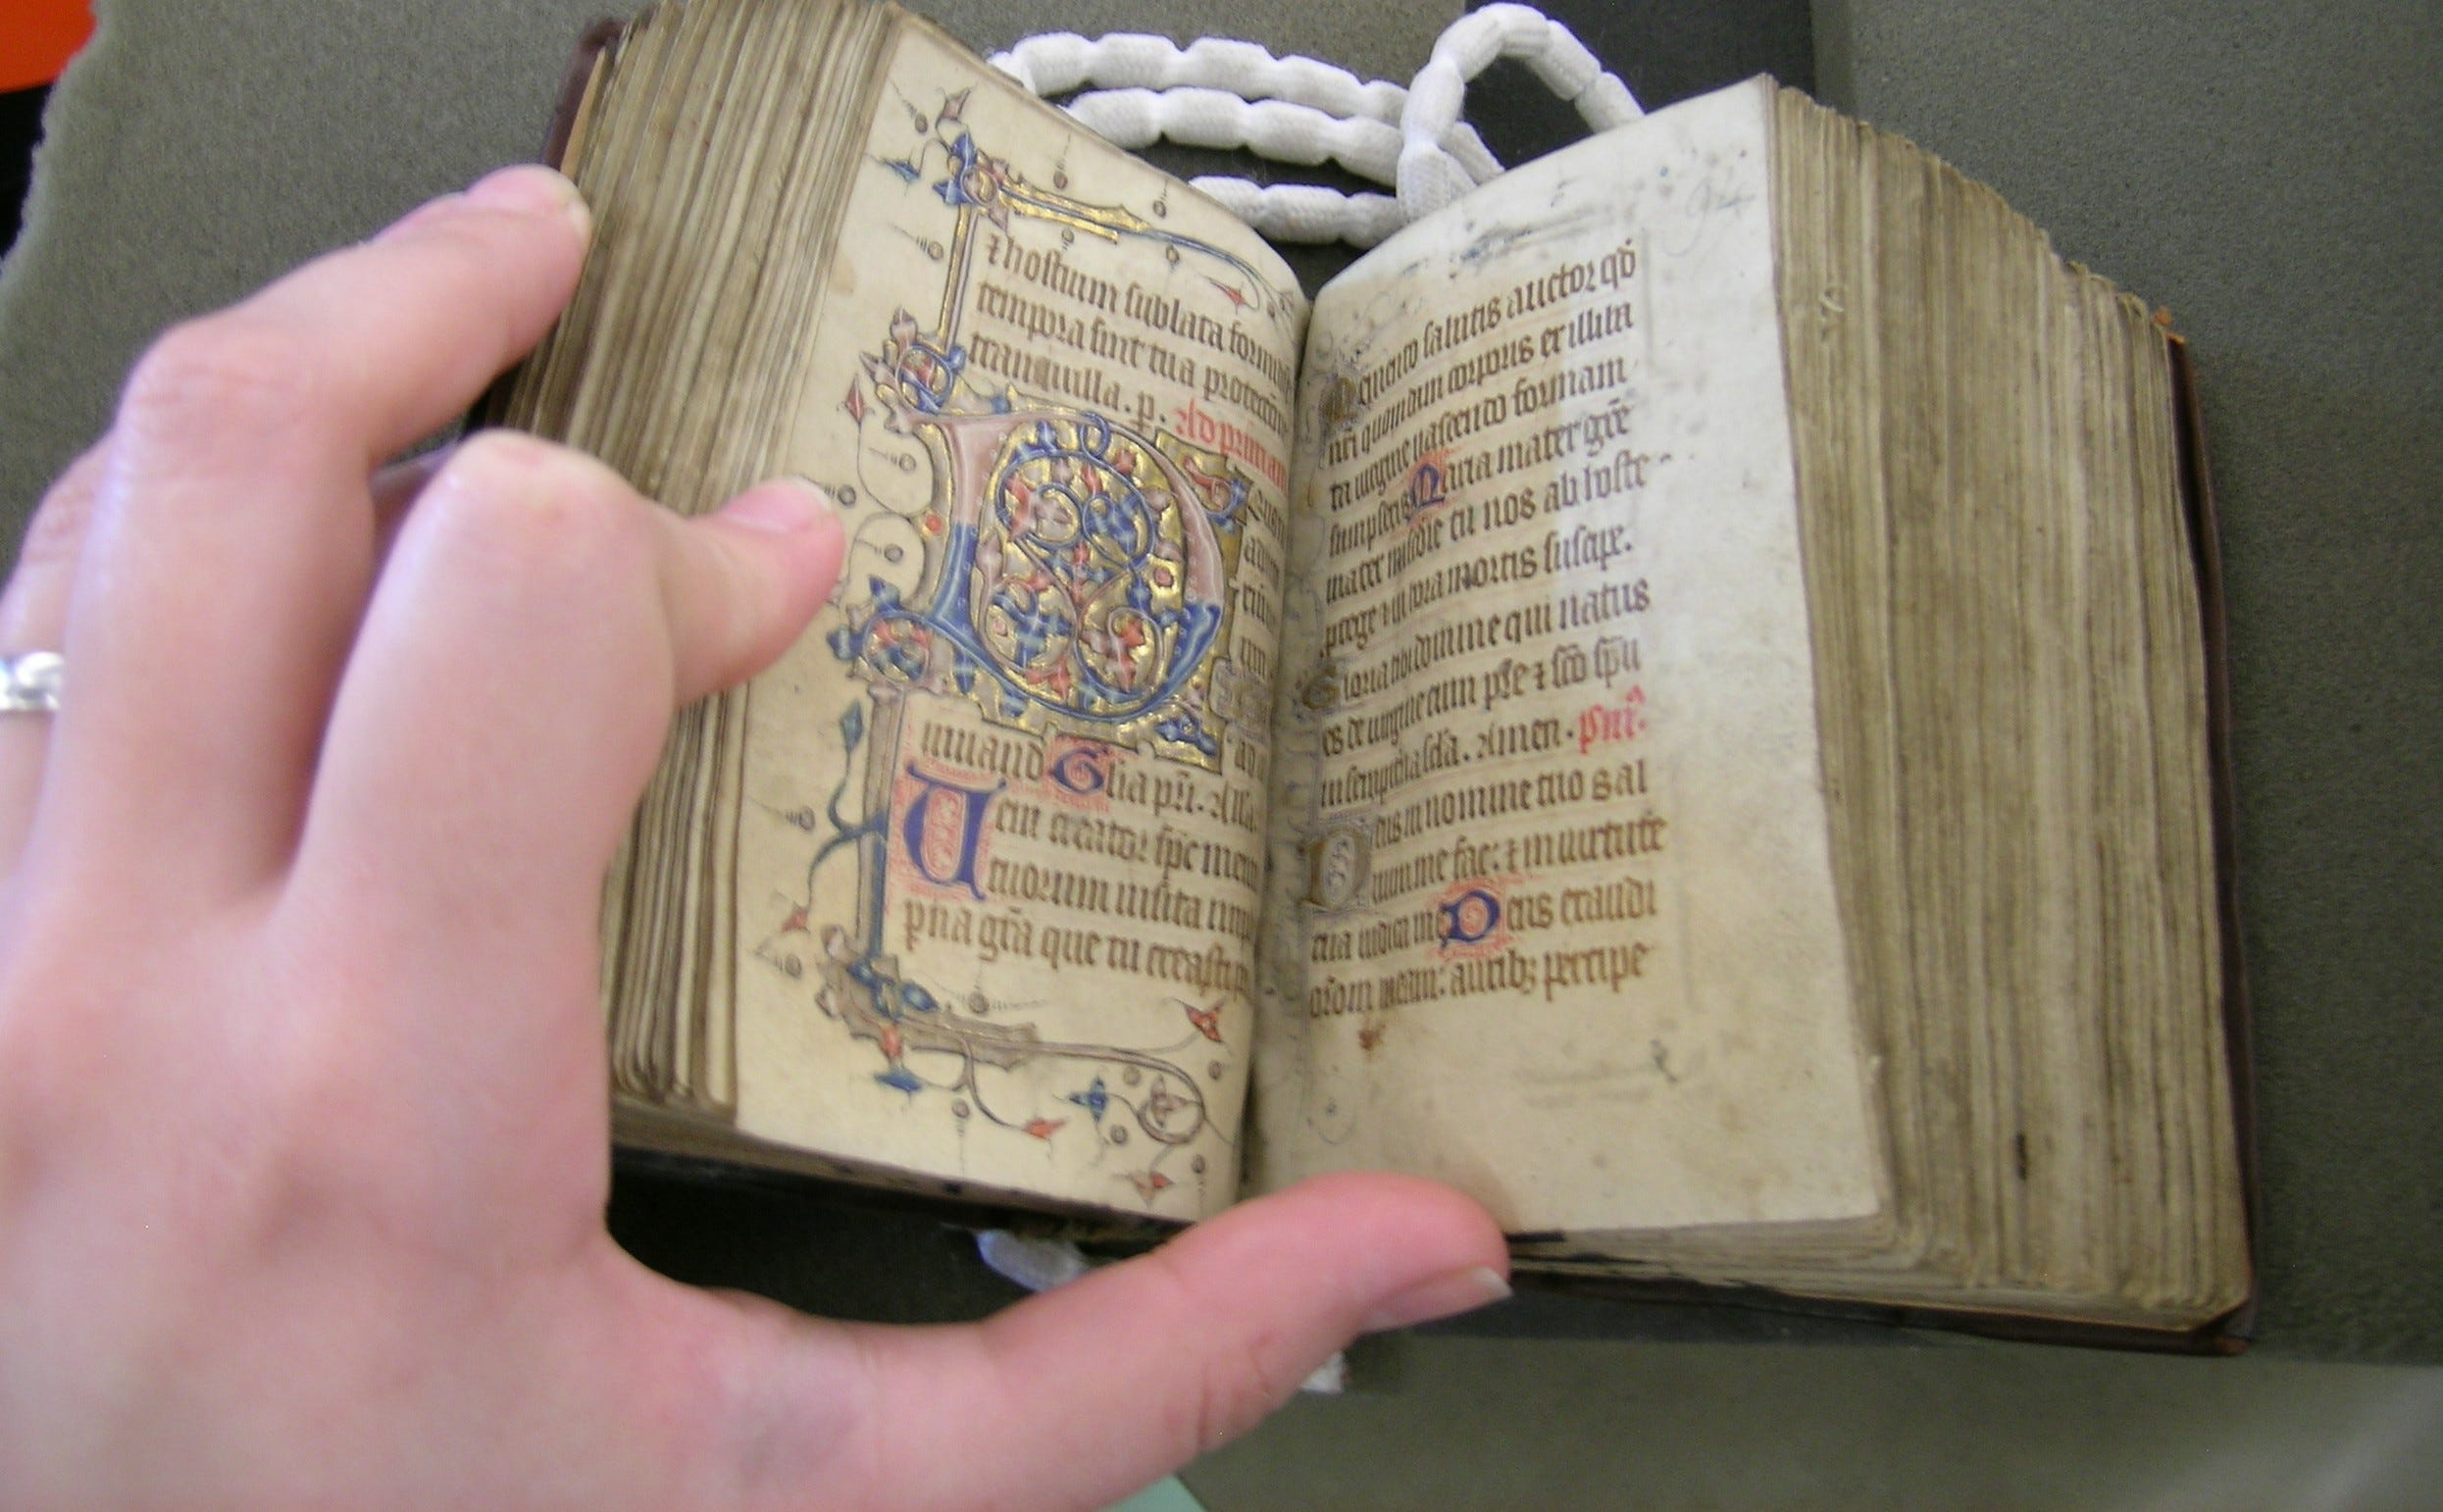 ⁊ hostium sublata formid
tempora sint tua protectio
tranquilla. p. Ad primam
D
uuand Glia pri. Alla.
Ueni creator spc mem
tuorum uisita
pna gra que tu creasti p
94
emento salutis auctor qd
nri quondam corporis ex illiba
ta uirgine nascendo formam
sumpseris Maria mater gre
mater misdie tu nos ab hoste
protege ⁊ in hora mortis suscipe.
Gloria tibi domine qui natus
es de uirgine cum pre ⁊ sco spu
in sempitna scla. Amen. psm.
Deus in nomine tuo sal
uum me fac: ⁊ in uirtute
tua iudica me Deus exaudi
orom meam: auribz percipe